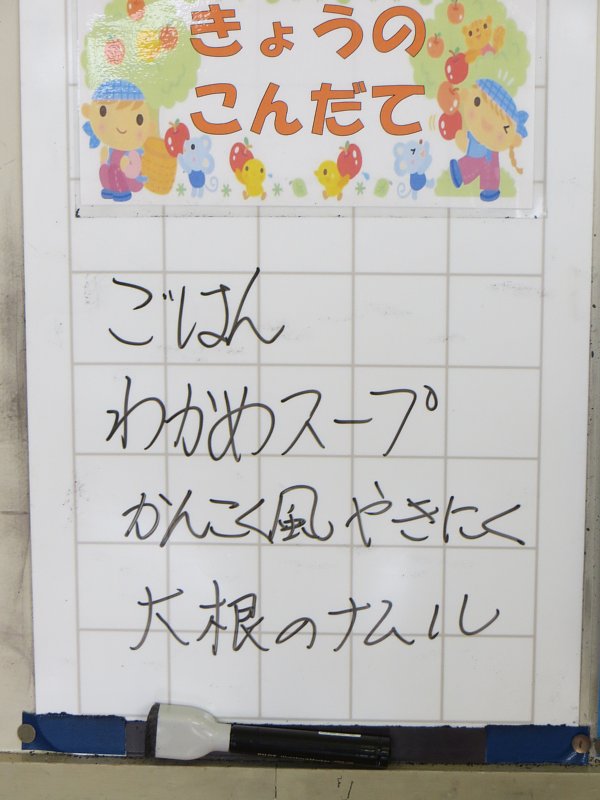 きょうの
こんだて
ごはん
わかめスープ
かんこく風やきにく
大根のナムル